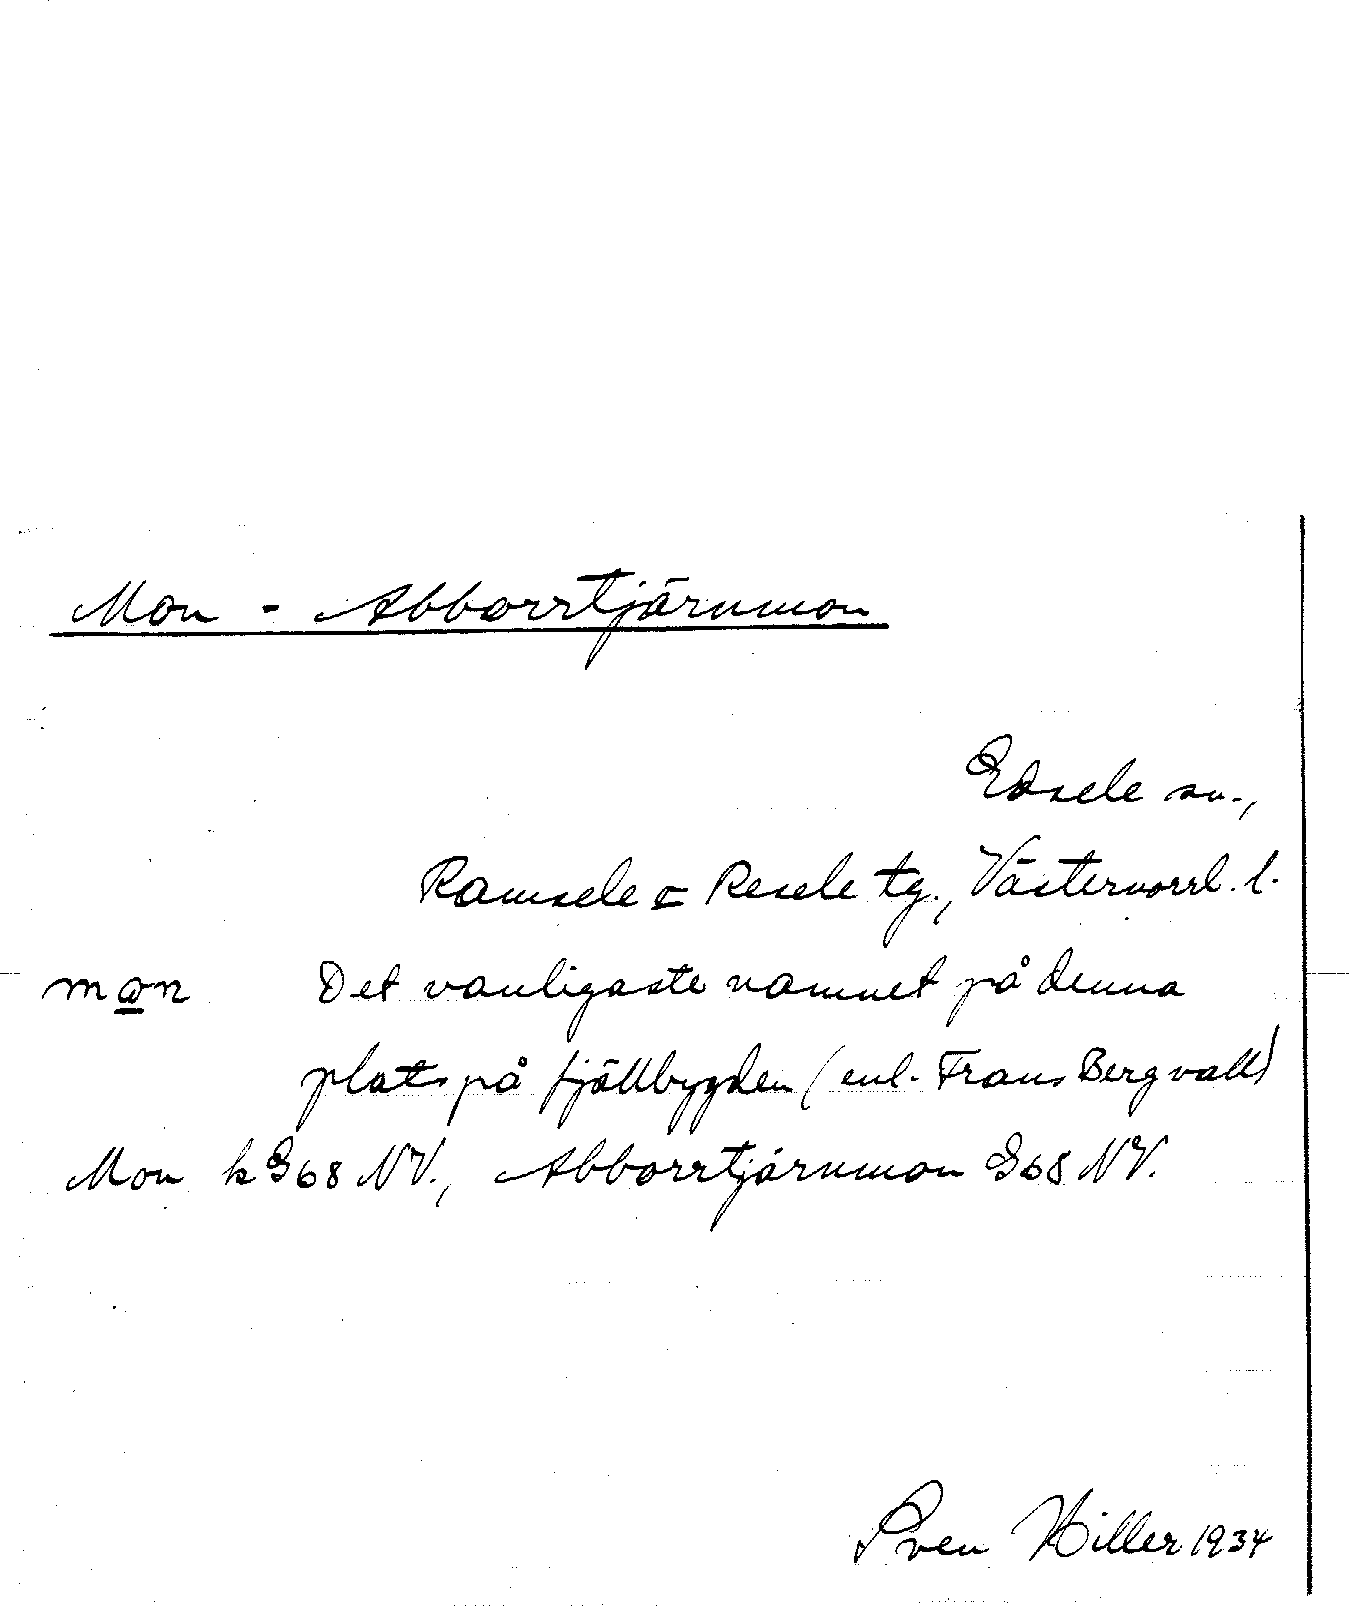 Mon - Abborrtjärnmon
Edsele sn.,
Ramsele o Resele tg., Västernorrl. l.
mon Det vanligaste namnet på denna
plats på fjällbygden (enl. Frans Bergvall)
Mon k G68 NV., Abborrtjärnmon G68 NV.
Sven Hiller 1934